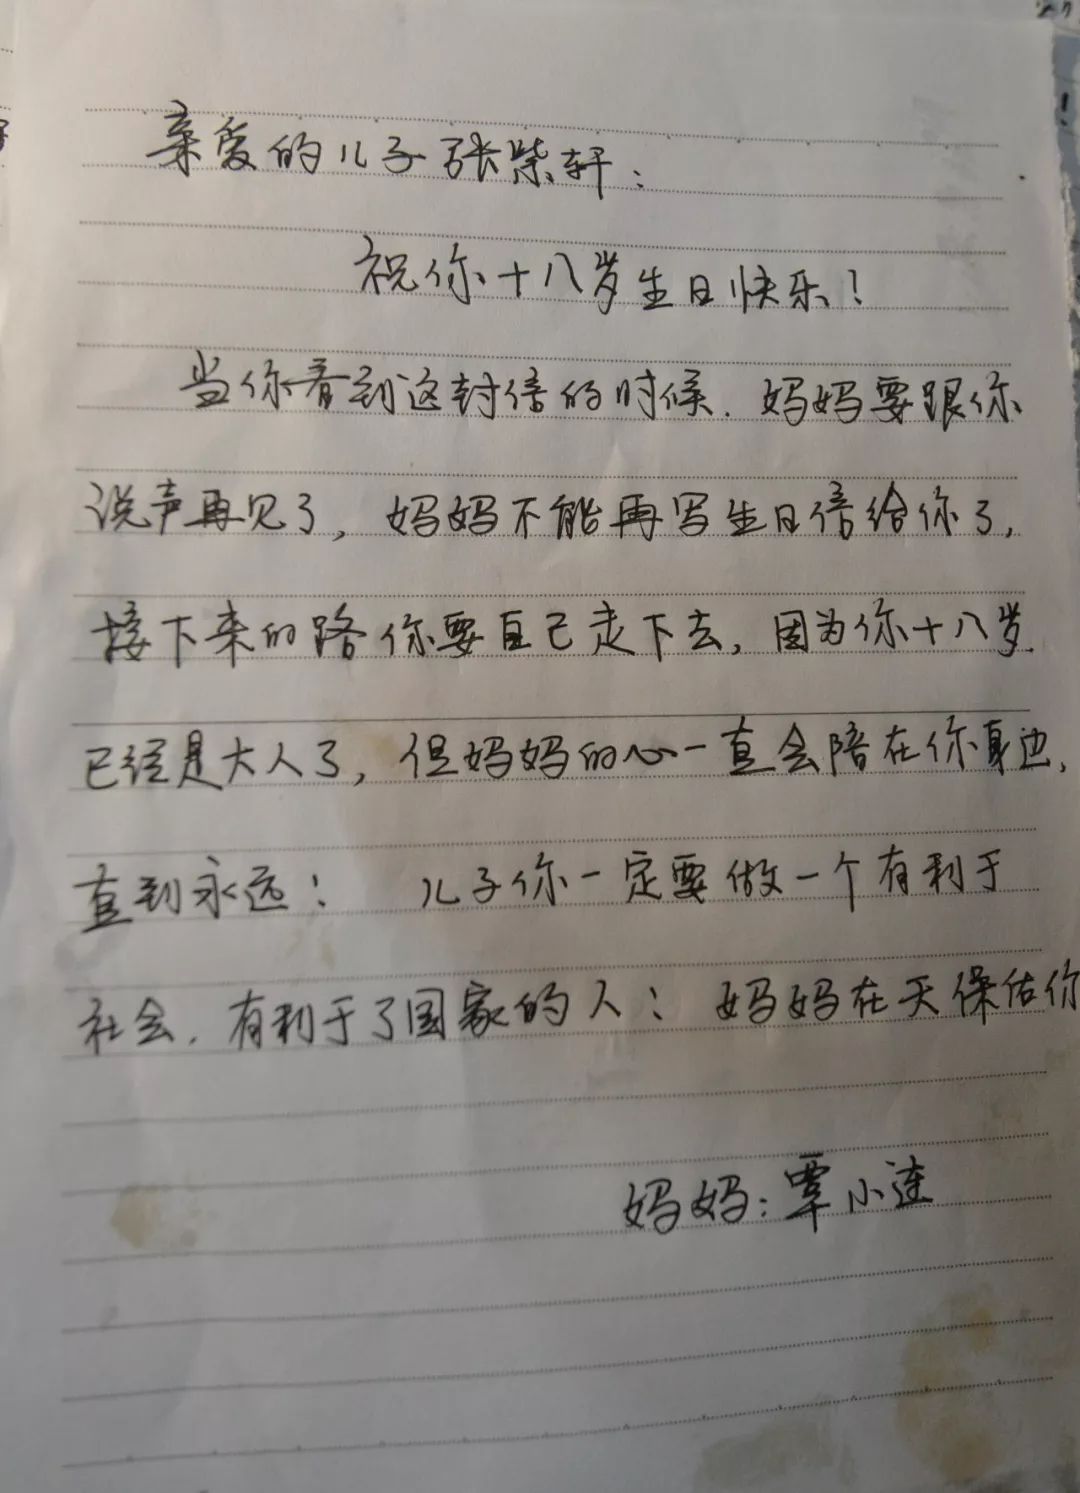 亲爱的儿子张柴轩：
祝你十八岁生日快乐！
当你看到这封信的时候．妈妈要跟你
说声再见了，妈妈不能再写生日信给你了，
接下来的路你要自己走下去，因为你十八岁．
已经是大人了，但妈妈的心一直会陪在你身边，
直到永远！ 儿子你一定要做一个有利于
社会．有利于了国家的人： 妈妈在天保估你
妈妈：覃小连